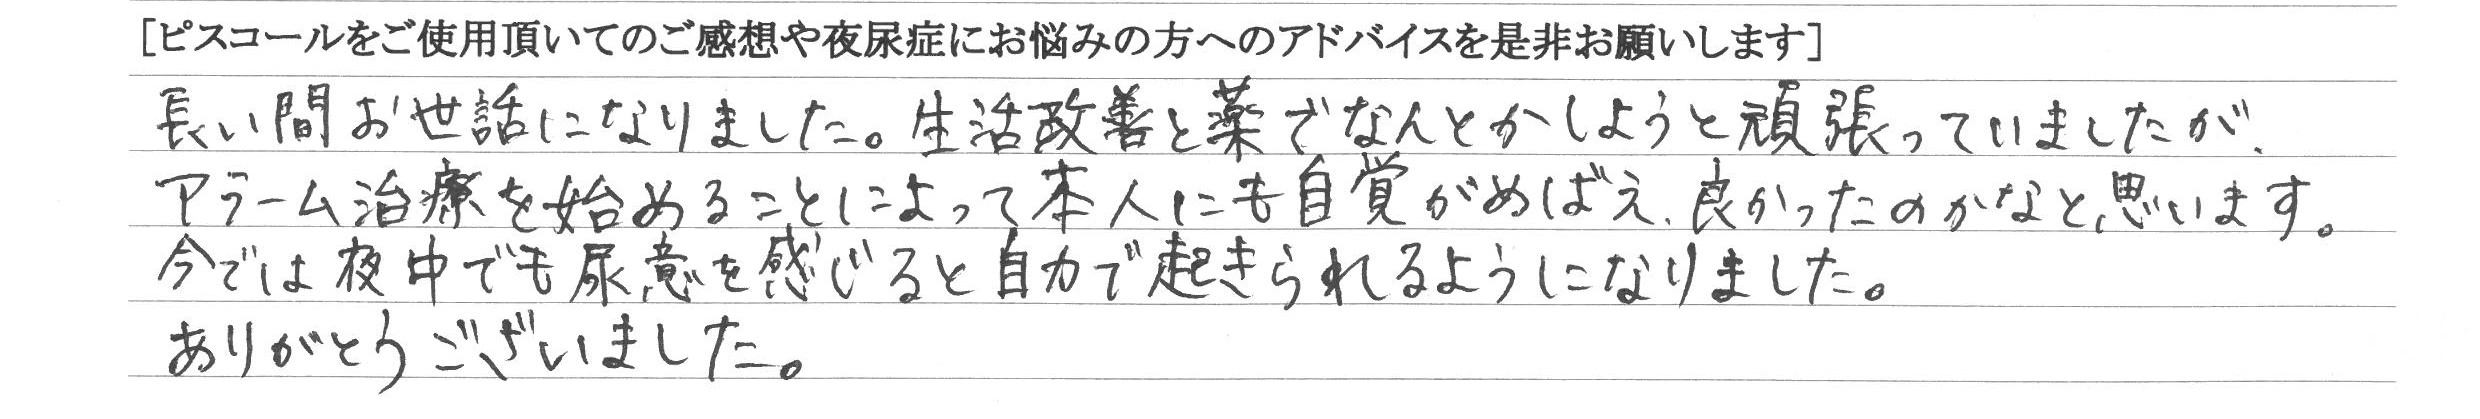 [ピスコールをご使用頂いてのご感想や夜尿症にお悩みの方へのアドバイスを是非お願いします]
長い間お世話になりました。生活改善と薬でなんとかしようと頑張っていましたが、
アラーム治療を始めることによって本人にも自覚がめばえ、良かったのかなと思います。
今では夜中でも尿意を感じると自力で起きられるようになりました。
ありがとうございました。